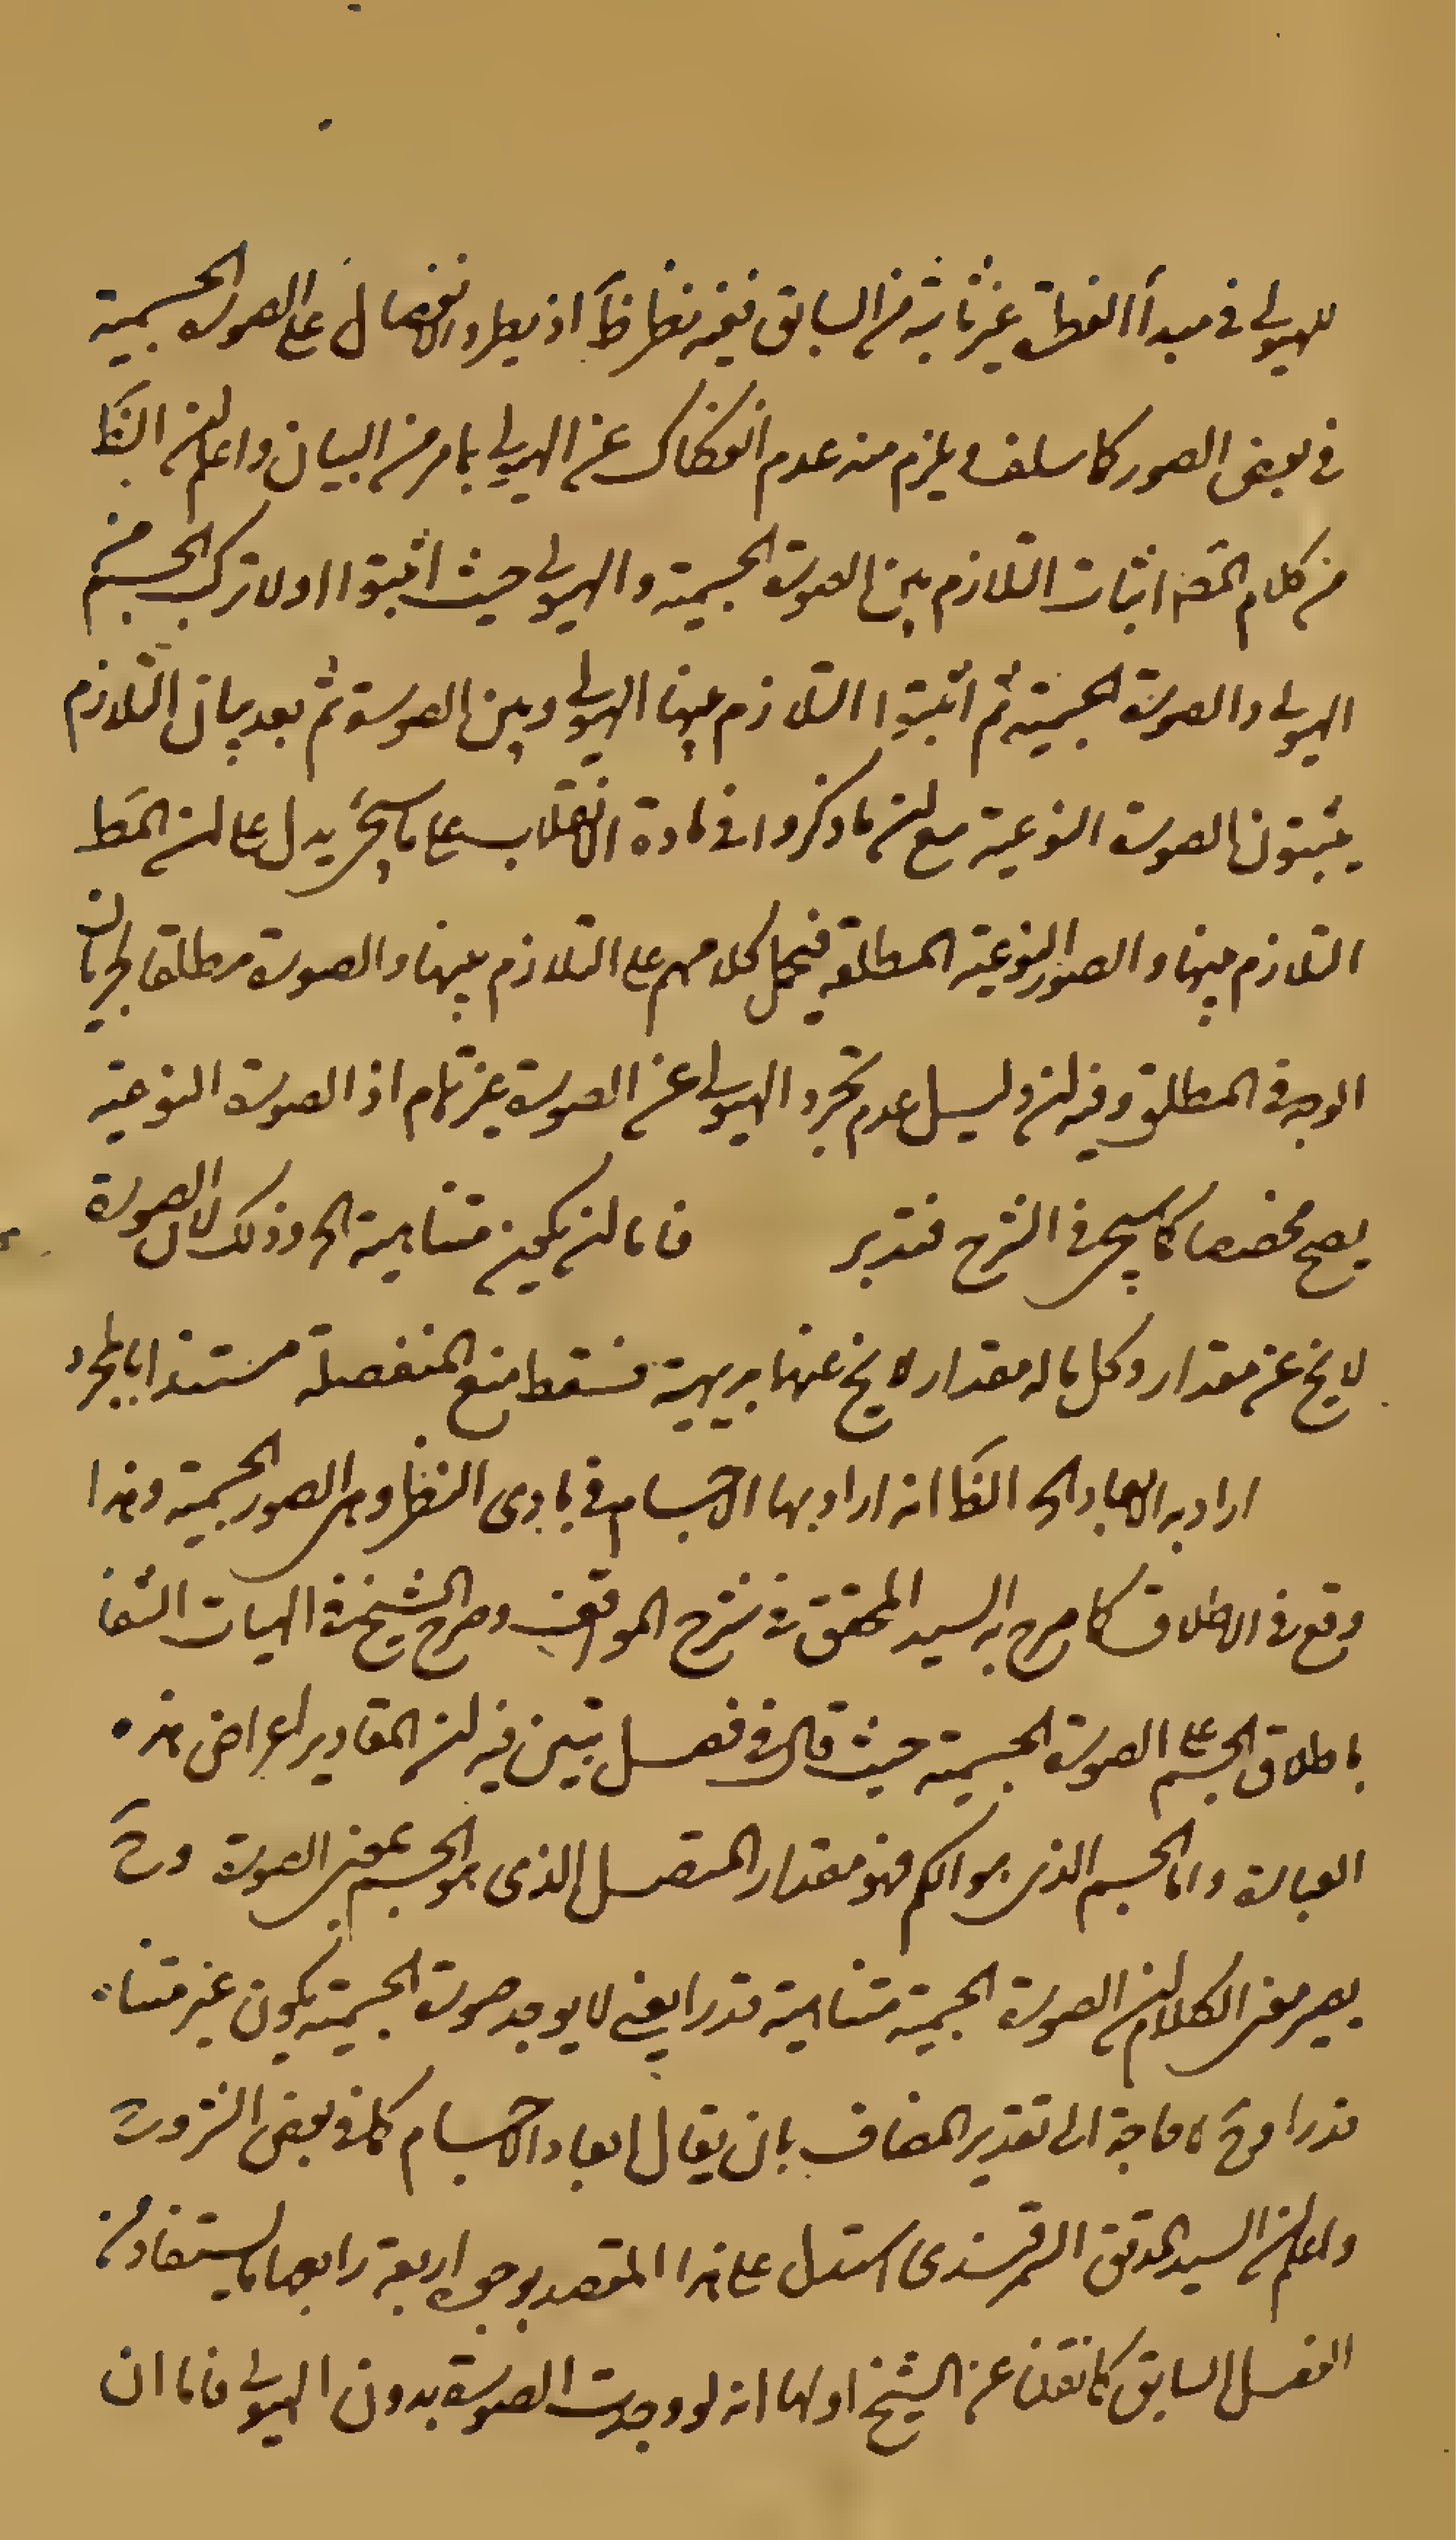 للهيولى في مبدأ الفطرة غير ثابتة من السابق ففيه نظر ظ اذ يطرد الانفصال على الصورة الجسمية
في بعض الصور كما سلف ويلزم منه عدم انفكاك عن الهيولى بامر من البيان واعلم ان الظا
من كلام المصـ اثبات التلازم بين الصورة الجسمية والهيولى حيث اثبتوا اولا تركب الجسم من
الهيولى والصورة الجسمية ثم اثبتوا التلازم بينها الهيولى وبين الصورة ثم بعد بيان التلازم
يثبتون الصورة النوعية مع ان ما ذكروا في مادة الانقلاب على ما سيجئ يدل على ان المط
التلازم بينها والصور النوعية المطلقة فيحمل كلامهم على التلازم بينها والصورة مطلقا لجريان
الوجه في المطلق وفيه ان دليل عدم تجرد الهيولى عن الصورة غير تام اذ الصورة النوعية
يصح مخصصا كما سيجئ في الشرح فتدبر فاما ان يكون متناهية الخ وذلك لان الصورة
لا يخ عن مقدار وكل ما له مقدار لا يخ عنهما بديهية فسقط منع المنفصلة مستندا بالمجرد
اراد به الابعاد الخ الظا انه اراد بها الاجسام في بادى النظر وهى الصور الجسمية وهذا
وقع في الاطلاق كما صرح به السيد المحقق في شرح المواقف وصرح الشيخ في الهيات الشفا
باطلاق الجسم على الصورة الجسمية حيث قال في فصل تبين فيه ان المقادير اعراض هذه
العبارة واما الجسم الذى هو الكم فهو مقدار المتصل الذى هو الجسم بمعنى الصورة وح
يصير معنى الكلام ان الصورة الجسمية متناهية قدرا يعنى لا يوجد صورة الجسمية يكون غير متناه
قدرا وح لا حاجة الى تقدير المضاف بان يقال ابعاد الاجسام كما في بعض الشروح
واعلم ان السيد المدقق السمرقندى استدل على هذا المقصد بوجوه اربعة رابعها ما يستفاد من
الفصل السابق كما نقلنا عن الشيخ اولها انه لو وجدت الصورة بدون الهيولى فاما ان